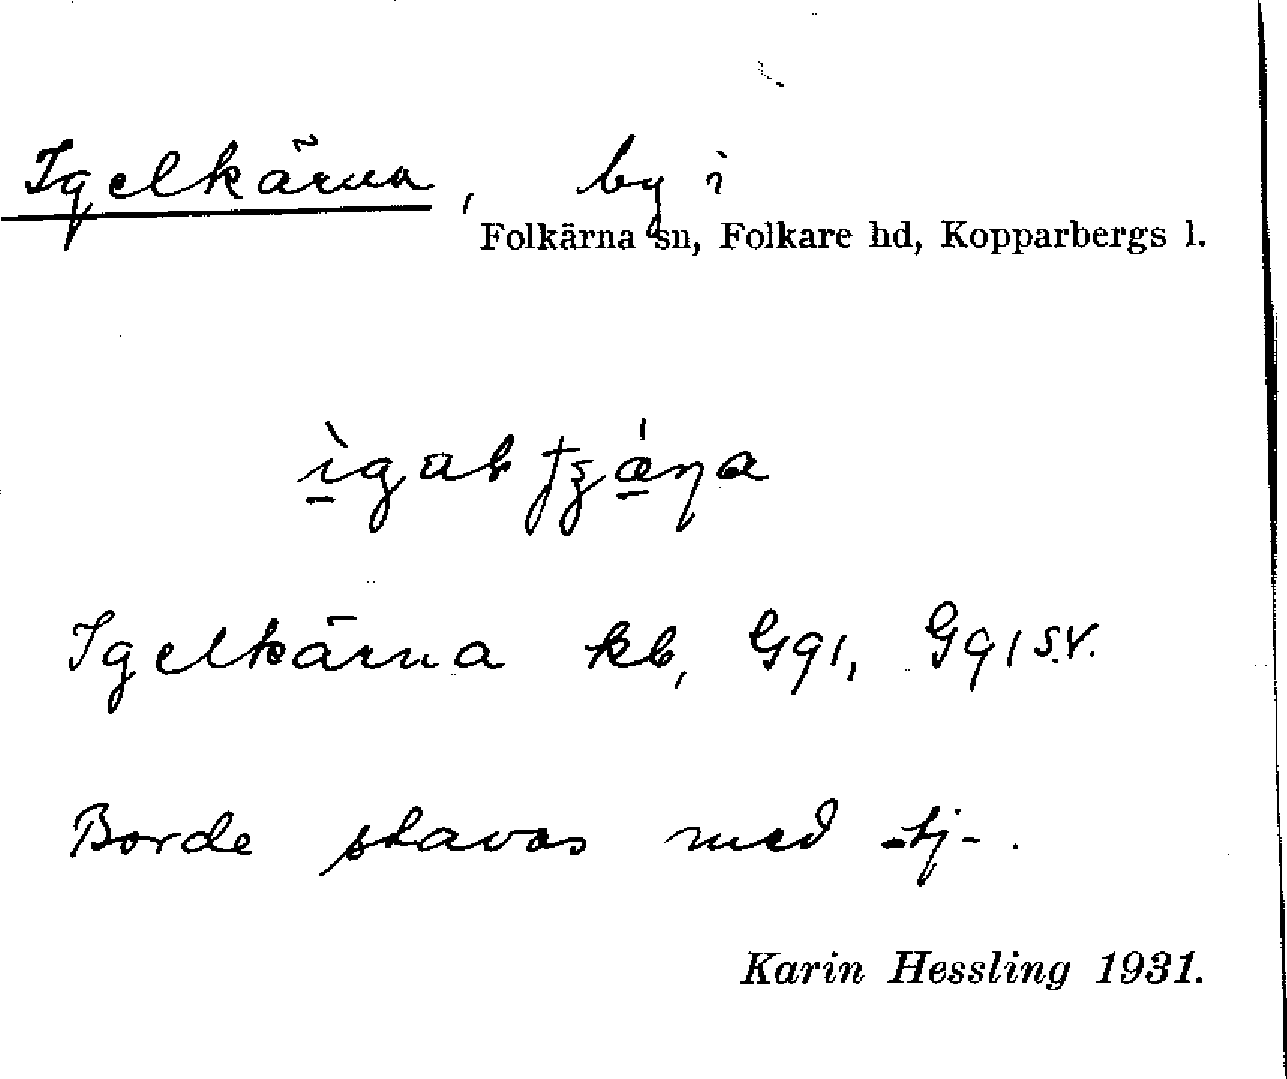 Igelkärna, by i
Folkärna sn, Folkare hd, Kopparbergs l.
Igelkärna kb, Gg1, Gg1 s.v.
Borde stavas med -tj-.
Karin Hessling 1931.